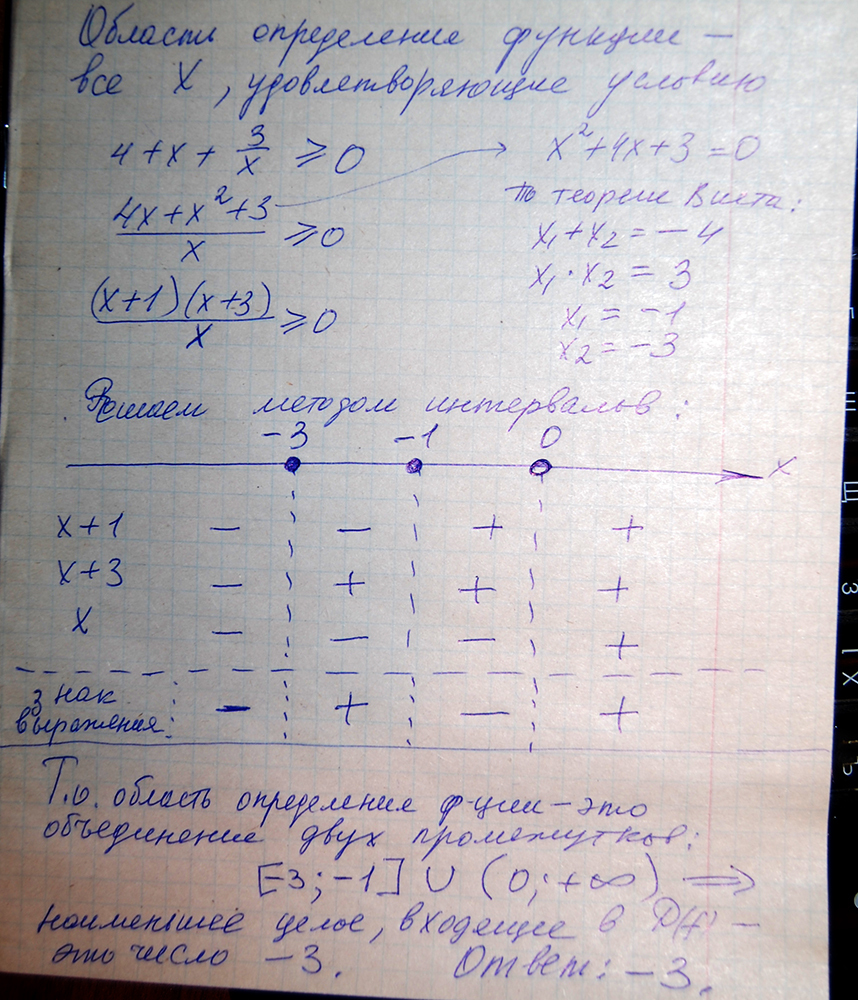 Область определения функции –
все X, удовлетворяющие условию
4 + x + 3/x ⩾ 0
x² + 4x + 3 = 0
(4x + x² + 3)/x ⩾ 0
по теореме Виета:
x₁ + x₂ = –4
x₁ · x₂ = 3
(x+1)(x+3)/x ⩾ 0
x₁ = –1
x₂ = –3
Решаем методом интервалов:
–3 –1 0
x
x+1 – – + +
x+3 – + + +
x – – – +
знак
выражения: – + – +
Т.о. область определения ф-ции – это
объединение двух промежутков:
[-3; -1] ∪ (0; +∞) ⟹
наименьшее целое, входящее в D(f) –
это число –3. Ответ: –3.